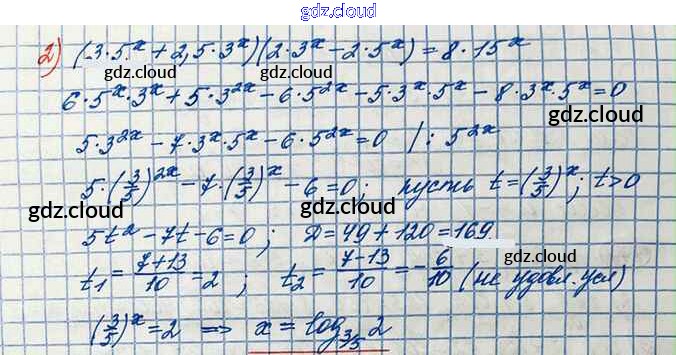 gdz.cloud
2) (3·5ˣ + 2,5·3ˣ)(2·3ˣ − 2·5ˣ) = 8·15ˣ
gdz.cloud gdz.cloud
6·5ˣ·3ˣ + 5·3²ˣ − 6·5²ˣ − 5·3ˣ·5ˣ − 8·3ˣ·5ˣ = 0
gdz.cloud
5·3²ˣ − 7·3ˣ·5ˣ − 6·5²ˣ = 0 /: 5²ˣ
gdz.cloud
5·(3/5)²ˣ − 7·(3/5)ˣ − 6 = 0; пусть t = (3/5)ˣ; t > 0
gdz.cloud gdz.cloud
5t² − 7t − 6 = 0; D = 49 + 120 = 169
gdz.cloud
t₁ = (7+13)/10 = 2; t₂ = (7−13)/10 = −6/10 (не удовл. усл)
gdz.cloud
(3/5)ˣ = 2 => x = log₃/₅ 2
gdz.cloud